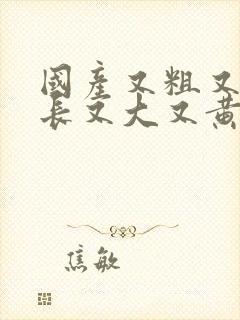 國產又粗又
長又大又黃
焦敏